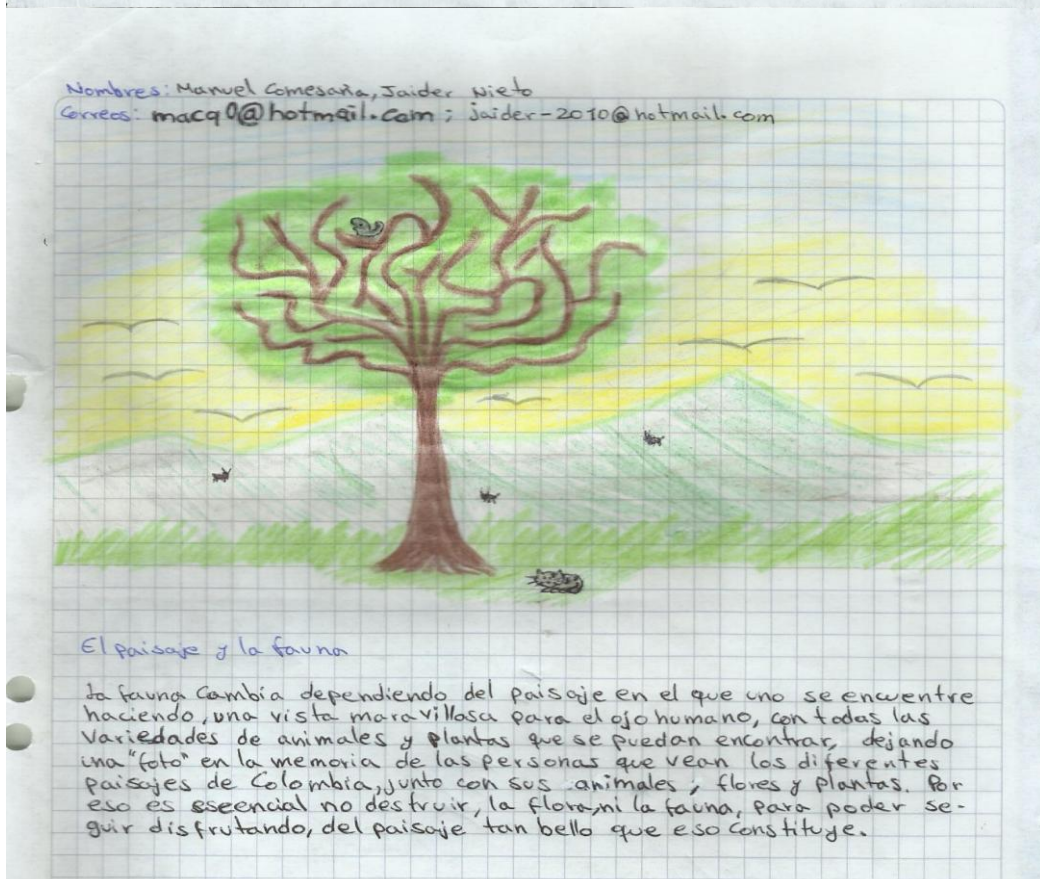 Nombres: Manuel Comesaña, Jaider Nieto
Correos: macq0@hotmail.com ; jaider-2010@hotmail.com
El paisaje y la fauna
La fauna cambia dependiendo del paisaje en el que uno se encuentre
haciendo, una vista maravillosa para el ojo humano, con todas las
variedades de animales y plantas que se puedan encontrar, dejando
una "foto" en la memoria de las personas que vean los diferentes
paisajes de Colombia, junto con sus animales, flores y plantas. Por
eso es eseencial no destruir, la flora, ni la fauna, para poder se-
guir disfrutando, del paisaje tan bello que eso constituye.